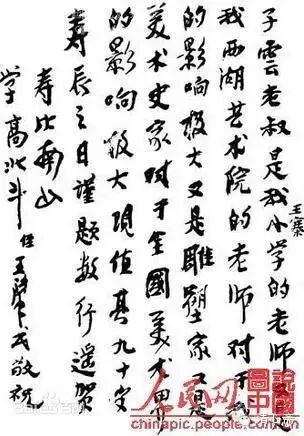 子雲老叔是我小学的老师又是
王寨
我西湖艺术院的老师对于我
的影响极大又是雕塑家又是
美术史家对于全國美术界
的影响极大现值其九十岁
寿辰之日谨题数行遥贺
寿比南山
学高北斗 侄王肇民敬祝
人民网
图说中国
chinapic.people.com.cn